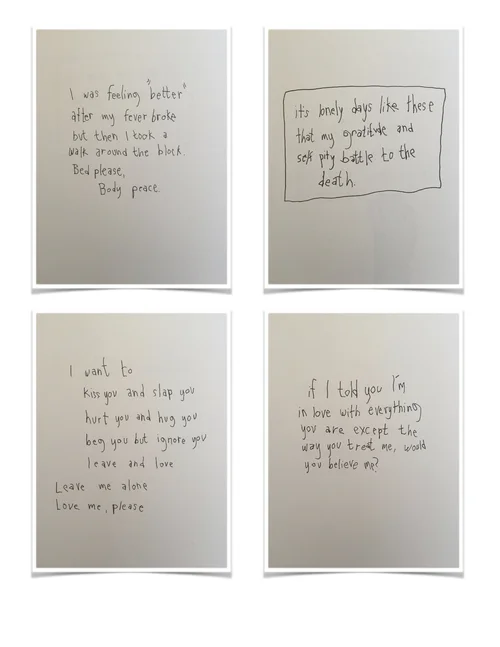 I was feeling "better"
after my fever broke
but then I took a
walk around the block.
Bed please,
Body peace.
it's lonely days like these
that my gratitude and
self pity battle to the
death.
I want to
kiss you and slap you
hurt you and hug you
beg you but ignore you
leave and love
Leave me alone
Love me, please
if I told you I'm
in love with everything
you are except the
way you treat me, would
you believe me?